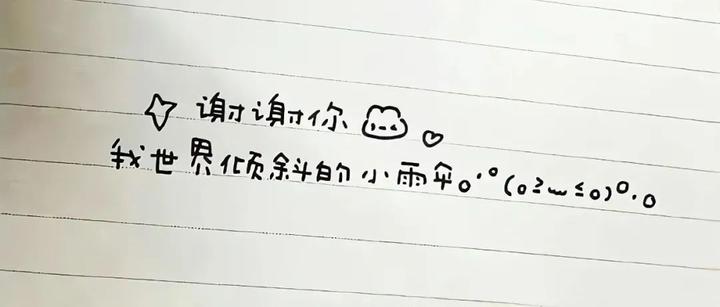 谢谢你
我世界倾斜的小雨伞o.°(o≥ω≤o)°.o